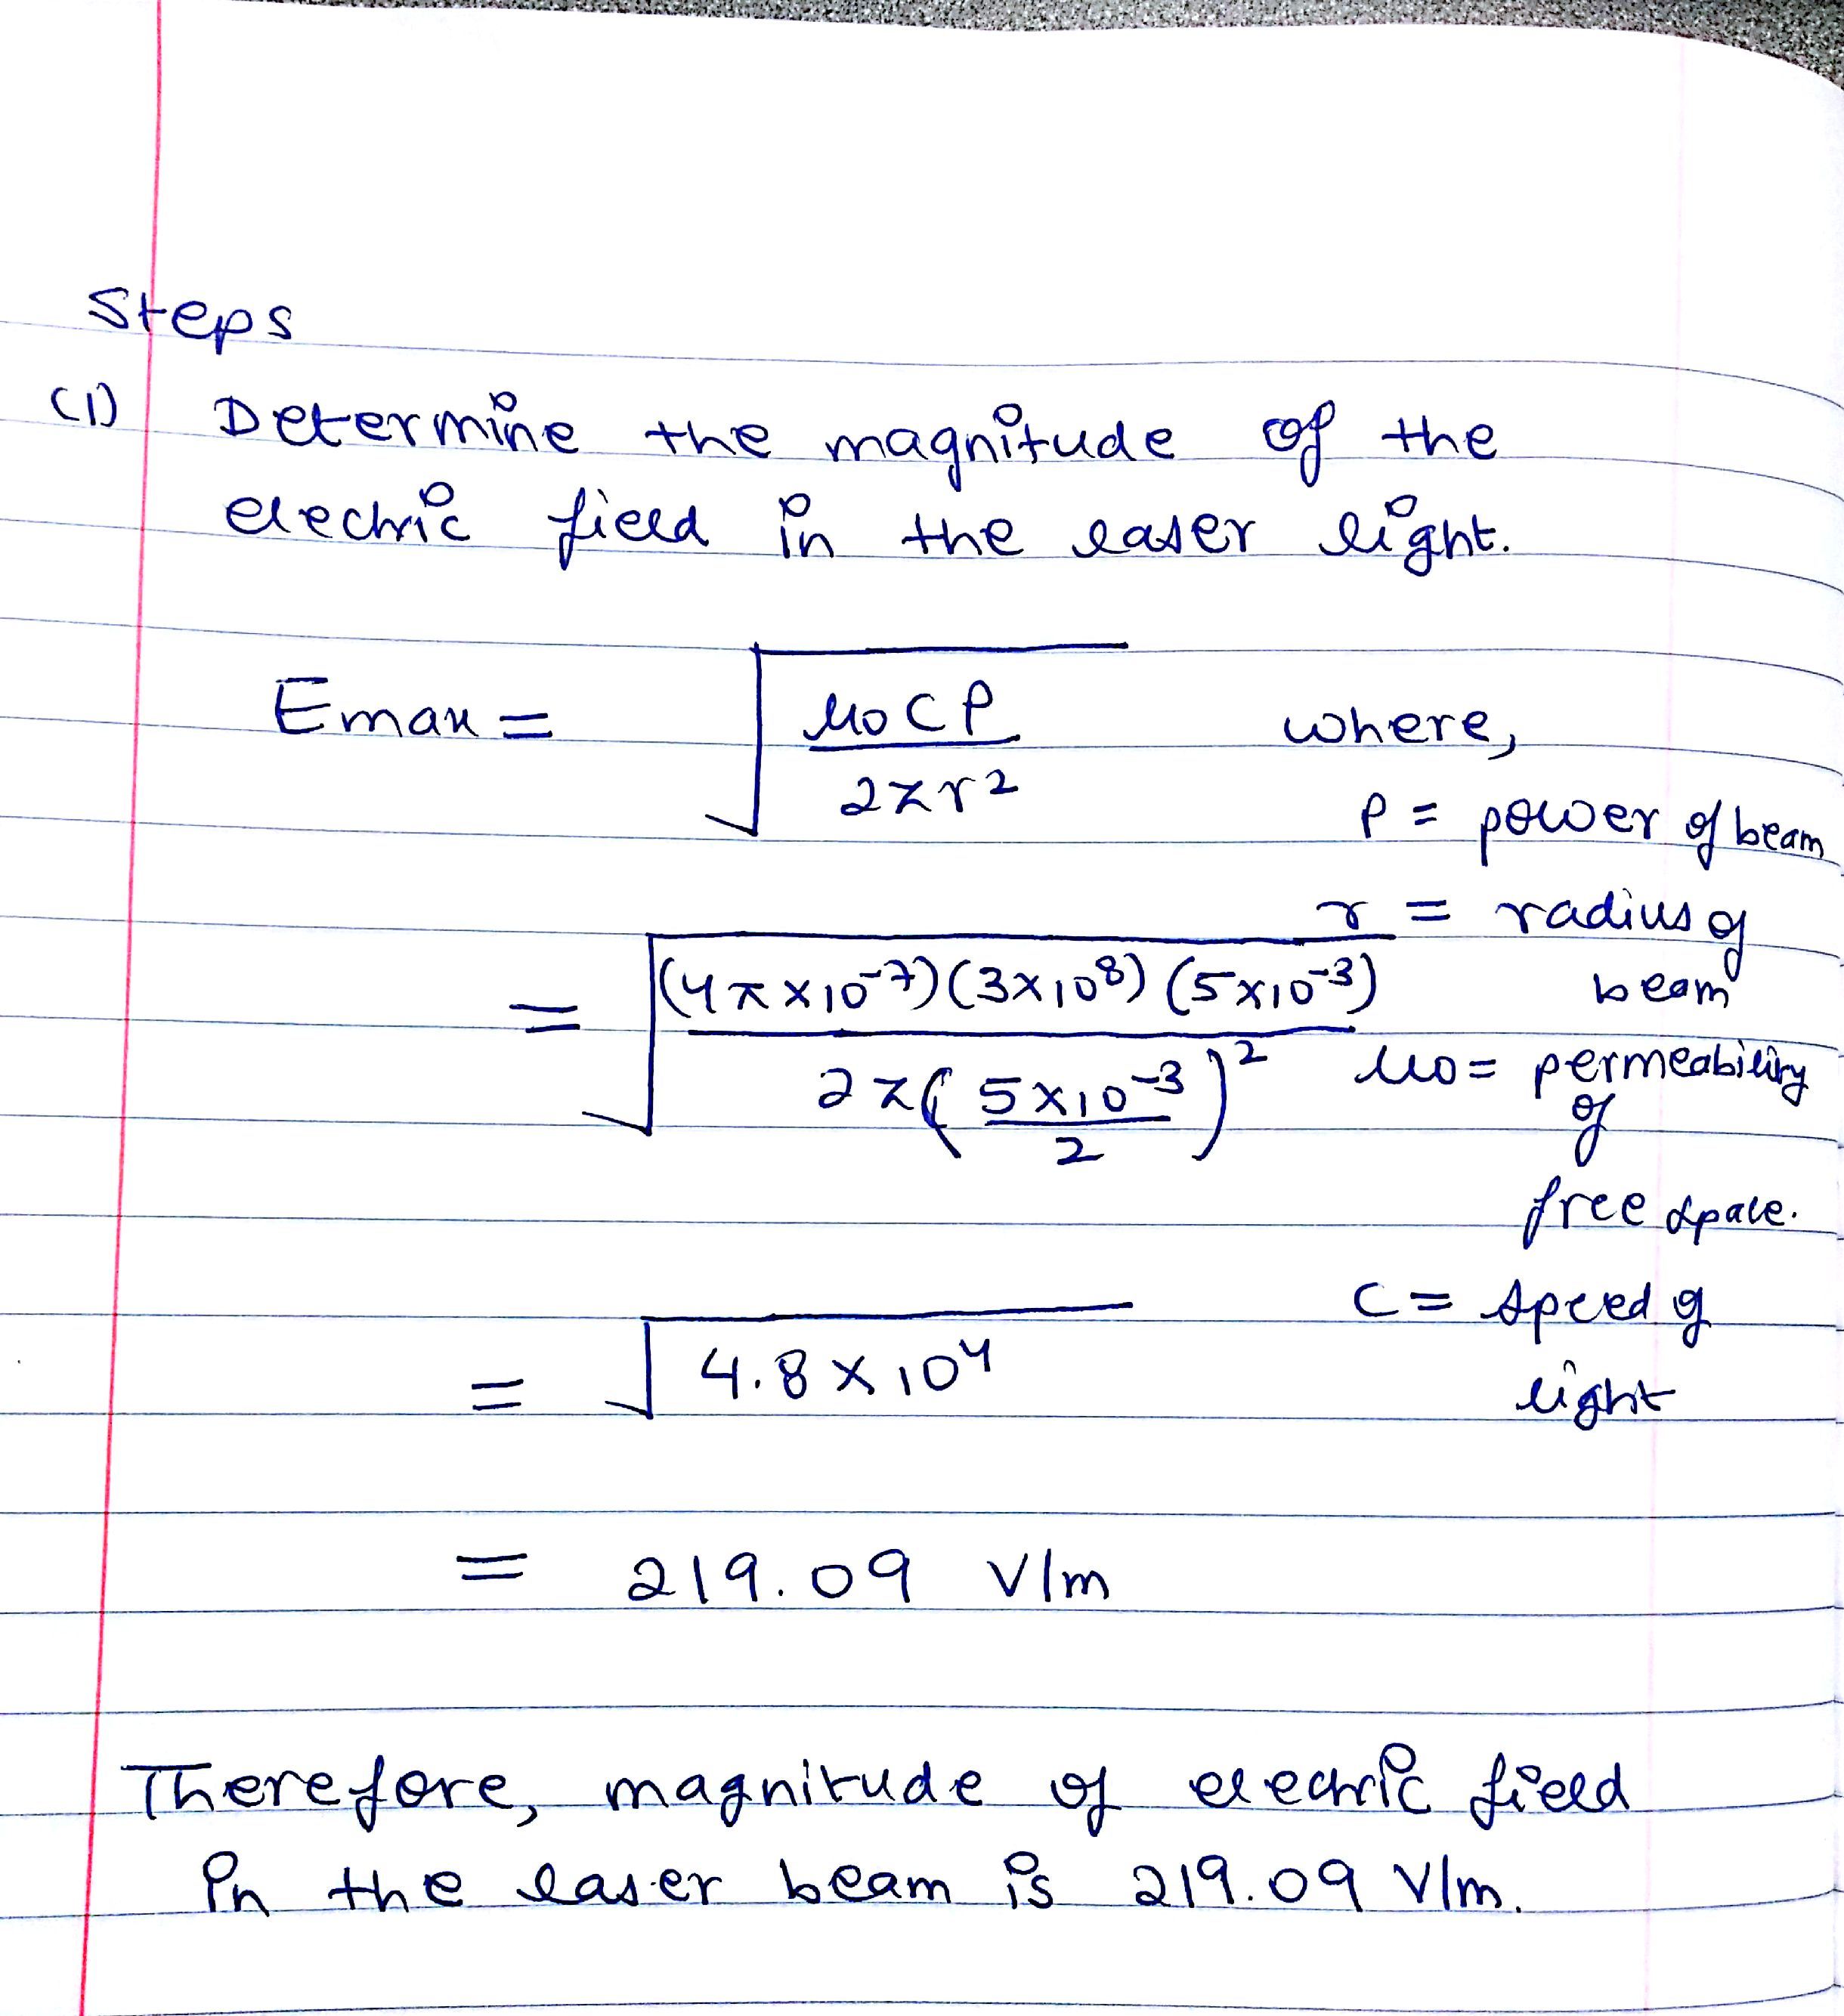 Steps
(1) Determine the magnitude of the
electric field in the laser light.
Emax = √(μ0CP / 2πr²) where,
P = power of beam
r = radius of
beam
= √((4π×10⁻⁷)(3×10⁸)(5×10⁻³) / 2π(5×10⁻³/2)²)
μ0 = permeability
of
free space.
C = speed of
light
= √4.8×10⁴
= 219.09 V/m
Therefore, magnitude of electric field
in the laser beam is 219.09 V/m.